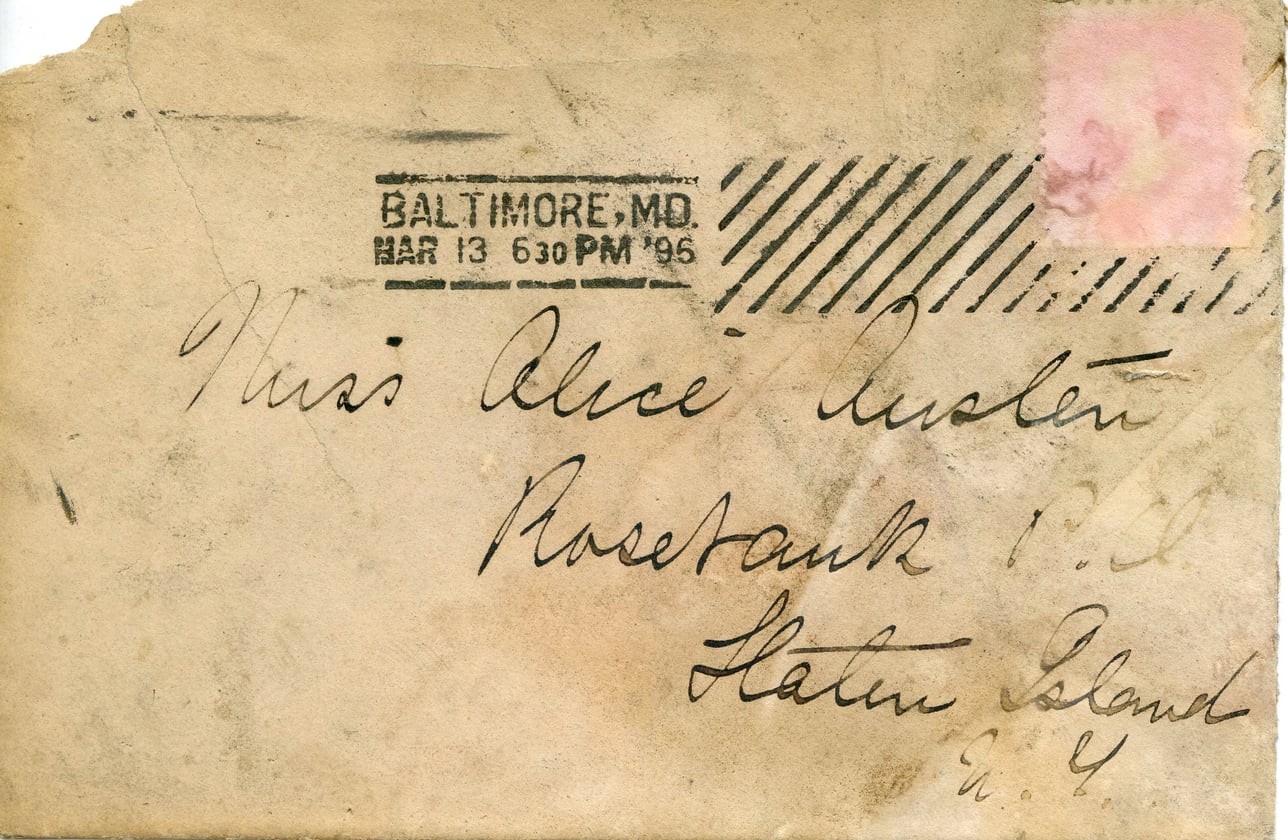 BALTIMORE, MD.
MAR 13 630 PM '96
Miss Alice Austen
Rosebank P.O.
Staten Island
N.Y.